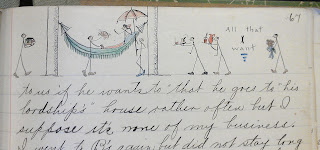 67
All that
I
want
to us if he wants to that he goes to "his
lordship's" house rather often but I
suppose its none of my business.
I went to P's again but did not stay long